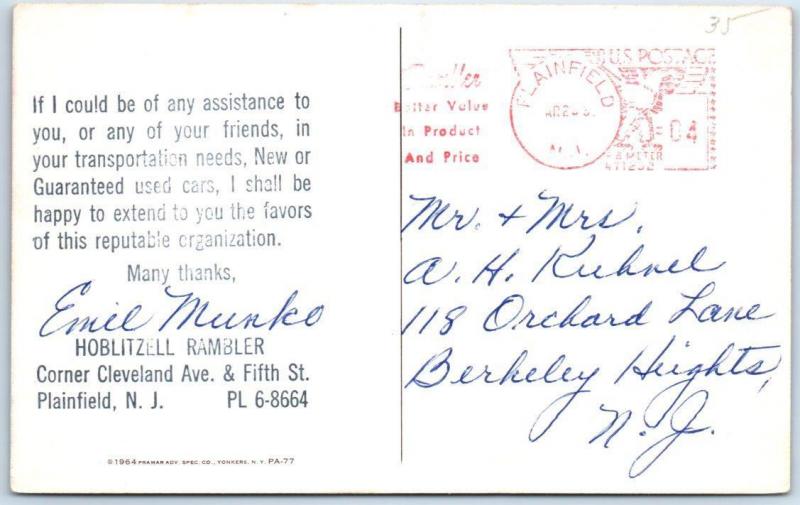 35
If I could be of any assistance to
you, or any of your friends, in
your transportation needs, New or
Guaranteed used cars, I shall be
happy to extend to you the favors
of this reputable organization.
Many thanks,
Emil Munko
HOBLITZELL RAMBLER
Corner Cleveland Ave. & Fifth St.
Plainfield, N. J. PL 6-8664
©1964 PRAMAR ADV. SPEC. CO., YONKERS, N. Y. PA-77
Rambler
Better Value
In Product
And Price
PLAINFIELD
N.J.
U.S. POSTAGE
04
METER
Mr. + Mrs.
A. H. Kuhnel
118 Orchard Lane
Berkeley Heights,
N. J.